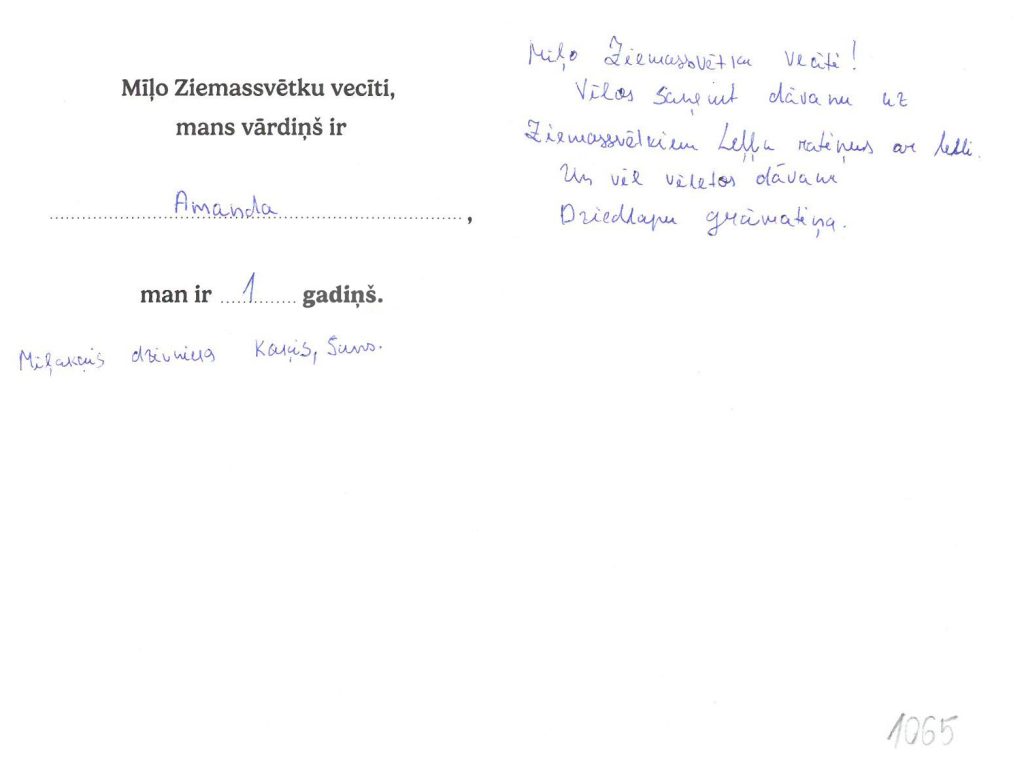 Mīļo Ziemassvētku vecīti,
mans vārdiņš ir
Amanda,
man ir 1 gadiņš.
Miļakais dzivnieks Kaķis, Suns.
Miļo Ziemassvētku vecīti!
Vēlos saņemt dāvanu uz
Ziemassvētkiem Leļļu ratiņus ar lelli.
Un vēl vēletos dāvanā
Dziedlapu grāmatiņa.
1065